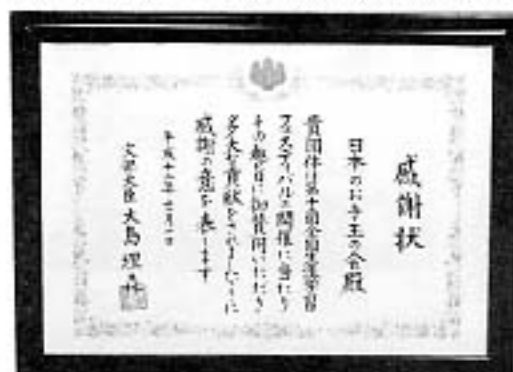 感謝状
日本のお手玉の会殿
貴団体は第十回全国生涯学習
フェスティバルの開催に当たり
その趣旨に御賛同いただき
多大な貢献をされましたので
感謝の意を表します
平成十二年 月一日
文部大臣 大島理森